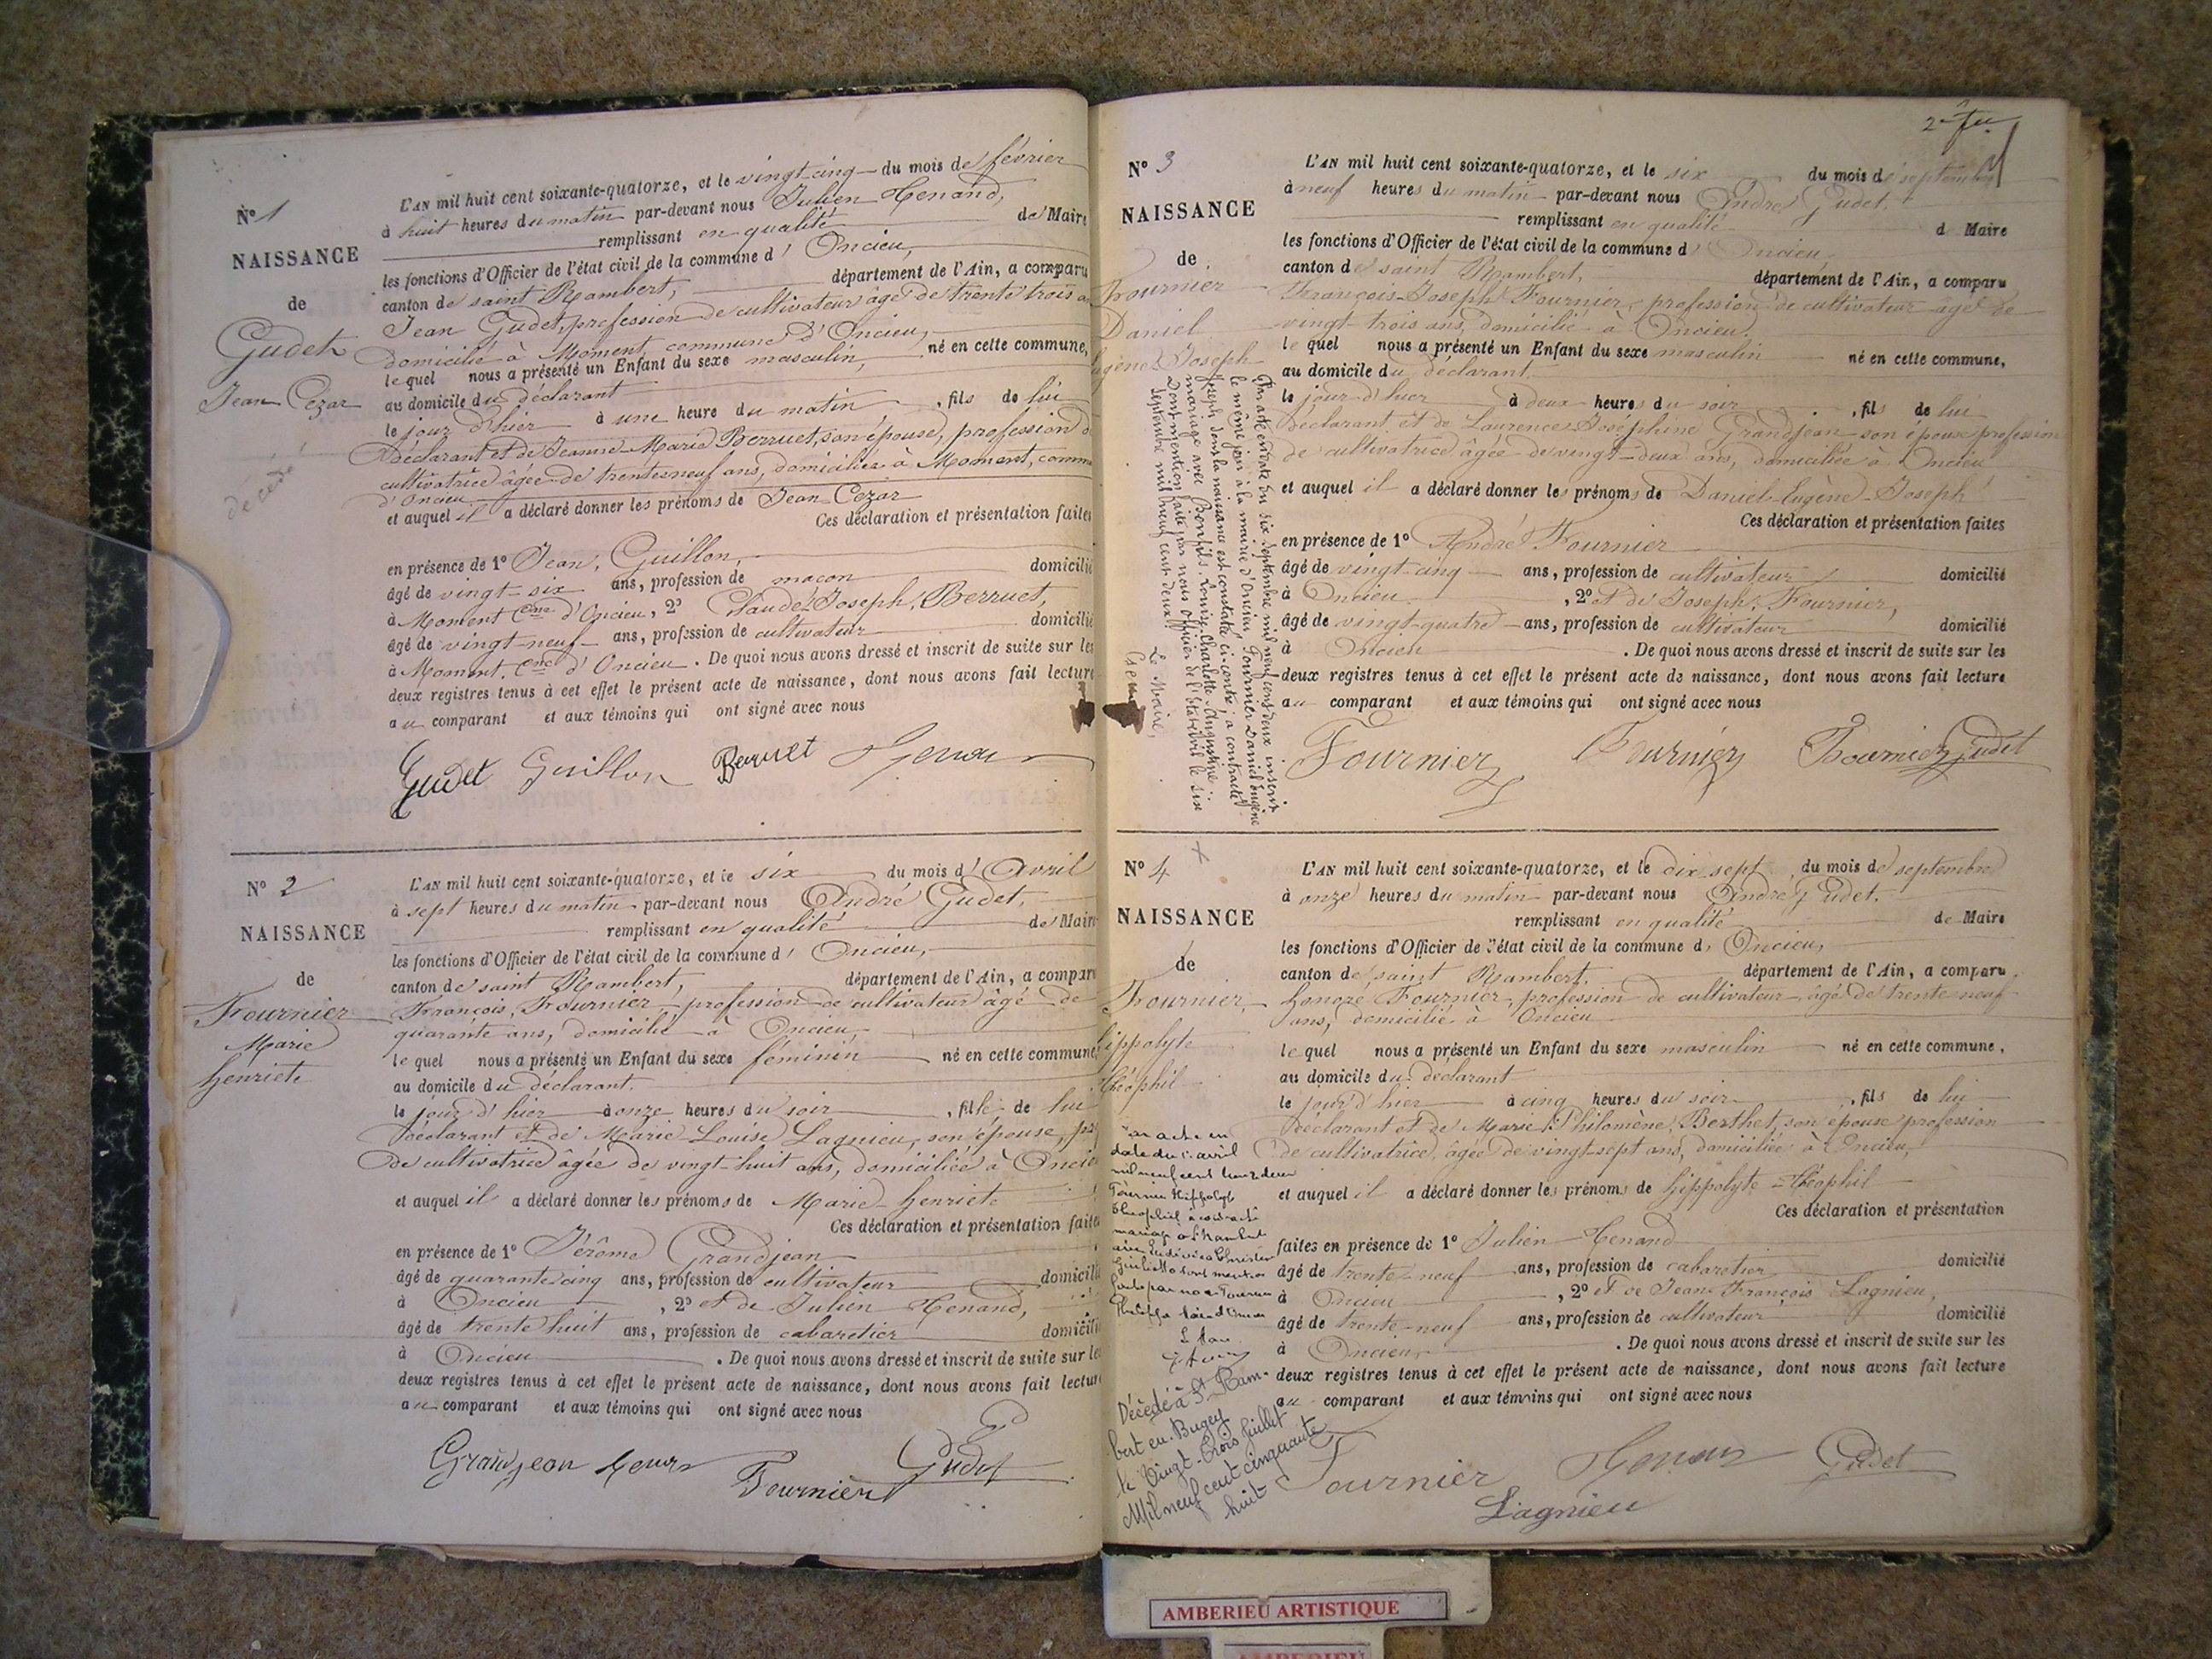 N° 1
NAISSANCE
de
Gudet
Jean Cézar
décédé
L'AN mil huit cent soixante-quatorze, et le vingt-cinq du mois de février
à huit heures du matin par-devant nous Julien Henand,
remplissant en qualité de Maire
les fonctions d'Officier de l'état civil de la commune d'Oncieu,
canton de saint Rambert, département de l'Ain, a comparu
Jean Gudet, profession de cultivateur âgé de trente trois ans
domicilié à Moment, commune d'Oncieu,
lequel nous a présenté un Enfant du sexe masculin, né en cette commune,
au domicile du déclarant
le jour d'hier à une heure du matin, fils de lui
déclarant et de Jeanne-Marie Berruet, son épouse, profession de
cultivatrice âgée de trente-neuf ans, domiciliée à Moment, comm
d'Oncieu
et auquel il a déclaré donner les prénoms de Jean Cézar
Ces déclaration et présentation faites
en présence de 1° Jean, Guillon,
âgé de vingt-six ans, profession de maçon domicilié
à Moment Cne d'Oncieu, 2° Claude-Joseph, Berruet,
âgé de vingt-neuf ans, profession de cultivateur domicilié
à Moment, Cne d'Oncieu. De quoi nous avons dressé et inscrit de suite sur les
deux registres tenus à cet effet le présent acte de naissance, dont nous avons fait lecture
au comparant et aux témoins qui ont signé avec nous
Gudet Guillon Berruet Henan
N° 2
NAISSANCE
de
Fournier
Marie
henriete
L'AN mil huit cent soixante-quatorze, et le six du mois d'Avril
à sept heures du matin par-devant nous André Gudet,
remplissant en qualité de Maire
les fonctions d'Officier de l'état civil de la commune d'Oncieu,
canton de saint Rambert, département de l'Ain, a comparu
François, Fournier profession de cultivateur âgé de
quarante ans, domicilié à Oncieu,
lequel nous a présenté un Enfant du sexe féminin né en cette commune,
au domicile du déclarant.
le jour d'hier à onze heures du soir, fille de lui
déclarant et de Marie-Louise Lagnieu, son épouse, pro
de cultivatrice âgée de vingt-huit ans, domiciliée à Oncieu
et auquel il a déclaré donner les prénoms de Marie-henriete
Ces déclaration et présentation faites
en présence de 1° Jérôme Grandjean
âgé de quarante-cinq ans, profession de cultivateur domicilié
à Oncieu, 2° et de Julien Henand,
âgé de trente huit ans, profession de cabaretier domicilié
à Oncieu. De quoi nous avons dressé et inscrit de suite sur les
deux registres tenus à cet effet le présent acte de naissance, dont nous avons fait lecture
au comparant et aux témoins qui ont signé avec nous
Grandjean henan Fournier Gudet
2e fu
N° 3
NAISSANCE
de
Fournier
Daniel
Eugène Joseph
Par acte en date du six septembre mil neuf cent deux inscrit
le même jour à la mairie d'Oncieu Fournier Daniel Eugène
Joseph dont la naissance est constatée ci-contre, a contracté
mariage avec Bonfils Louise Charlotte Augustine.
Dont mention faite par nous Officier de l'état civil le six
septembre mil neuf cent deux
Le Maire,
L'AN mil huit cent soixante-quatorze, et le six du mois de septembre
à neuf heures du matin par-devant nous André Gudet,
remplissant en qualité d Maire
les fonctions d'Officier de l'état civil de la commune d'Oncieu,
canton de saint Rambert, département de l'Ain, a comparu
François-Joseph Fournier, profession de cultivateur âgé de
vingt-trois ans, domicilié à Oncieu.
lequel nous a présenté un Enfant du sexe masculin né en cette commune,
au domicile du déclarant
le jour d'hier à deux heures du soir, fils de lui
déclarant et de Laurence-Joséphine Grandjean son épouse profession
de cultivatrice âgée de vingt-deux ans, domiciliée à Oncieu
et auquel il a déclaré donner les prénoms de Daniel-Eugène-Joseph
Ces déclaration et présentation faites
en présence de 1° André Fournier
âgé de vingt-cinq ans, profession de cultivateur domicilié
à Oncieu, 2° et de Joseph, Fournier,
âgé de vingt-quatre ans, profession de cultivateur domicilié
à Oncieu. De quoi nous avons dressé et inscrit de suite sur les
deux registres tenus à cet effet le présent acte de naissance, dont nous avons fait lecture
au comparant et aux témoins qui ont signé avec nous
Fournier Fournier Fournier Gudet
N° 4
NAISSANCE
de
Fournier,
hippolyte
théophil
Par acte en
date du 1er avril
mil neuf cent
Fournier Hippolyte
Théophil a contracté
mariage à St Rambert
avec
dont mention
faite par nous Fournier
Maire d'Oncieu
Le Maire
Décédé à St Ram-
bert en Bugey
le Vingt-trois juillet
Mil neuf cent cinquante
huit
L'AN mil huit cent soixante-quatorze, et le dix sept du mois de septembre
à onze heures du matin par-devant nous André Gudet.
remplissant en qualité de Maire
les fonctions d'Officier de l'état civil de la commune d'Oncieu,
canton de saint Rambert, département de l'Ain, a comparu
honoré Fournier, profession de cultivateur, âgé de trente-neuf
ans, domicilié à Oncieu
lequel nous a présenté un Enfant du sexe masculin né en cette commune,
au domicile du déclarant
le jour d'hier à cinq heures du soir, fils de lui
déclarant et de Marie-Philomène, Berthet, son épouse profession
de cultivatrice, âgée de vingt-sept ans, domiciliée à Oncieu,
et auquel il a déclaré donner les prénoms de hippolyte-théophil
Ces déclaration et présentation
faites en présence de 1° Julien Henand
âgé de trente-neuf ans, profession de cabaretier domicilié
à Oncieu, 2° et de Jean François Lagnieu,
âgé de trente-neuf ans, profession de cultivateur domicilié
à Oncieu. De quoi nous avons dressé et inscrit de suite sur les
deux registres tenus à cet effet le présent acte de naissance, dont nous avons fait lecture
au comparant et aux témoins qui ont signé avec nous
Fournier Henan Gudet
Lagnieu
AMBERIEU ARTISTIQUE
AMBERIEU